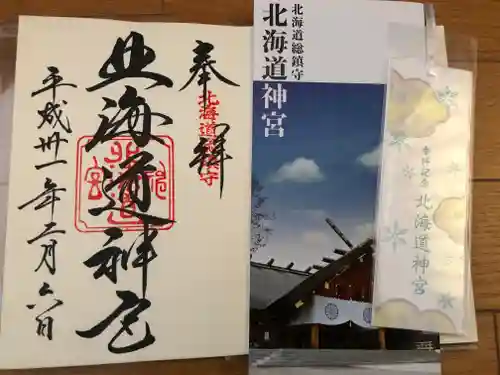 奉拝
北海道総鎮守
北海道神宮
平成卅一年二月六日
北海道総鎮守
北海道神宮
参拝記念
北海道神宮